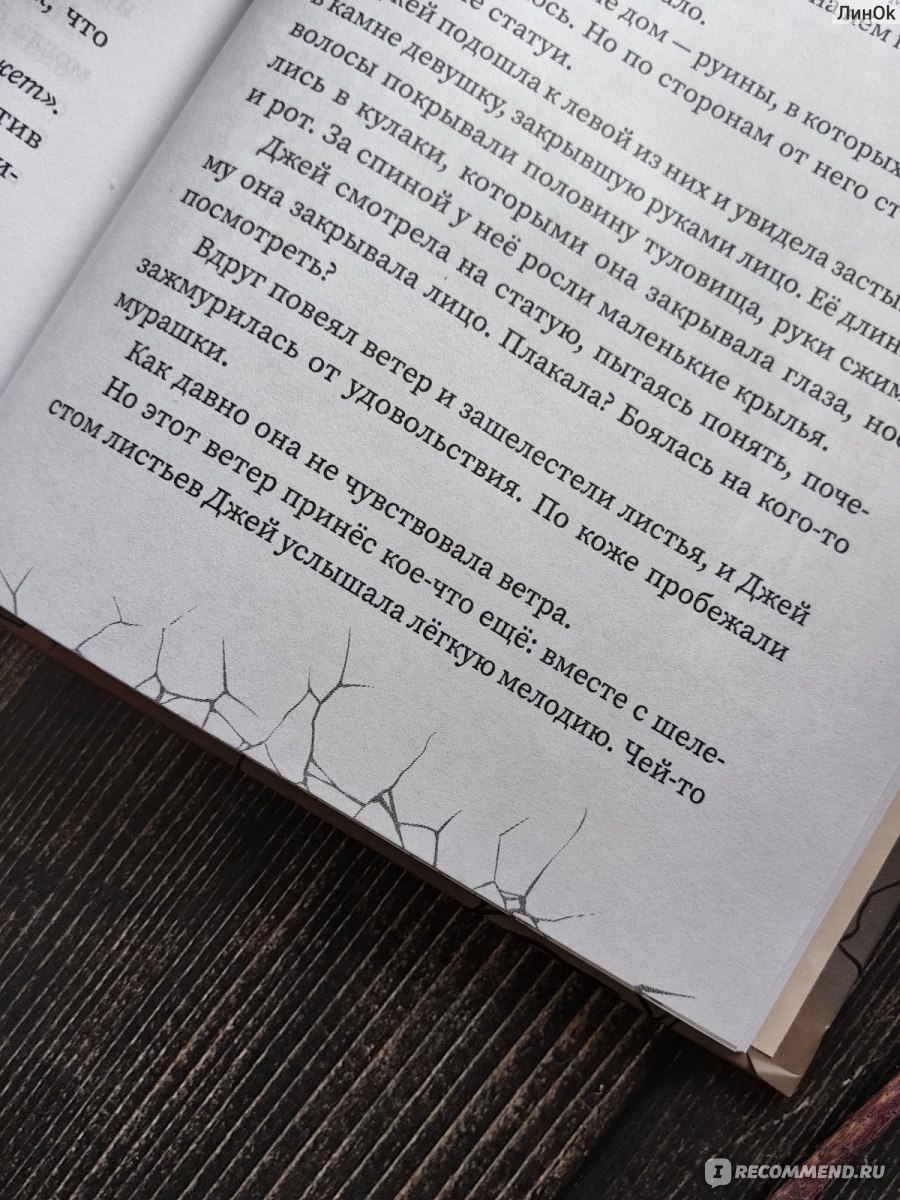 ЛинОк
, что
жет».
тив
и-
ало.
дом — руины, в которых
лось. Но по сторонам от него ст
статуи.
жей подошла к левой из них и увидела засты
в камне девушку, закрывшую руками лицо. Её длин
волосы покрывали половину туловища, руки сжим
лись в кулаки, которыми она закрывала глаза, нос
и рот. За спиной у неё росли маленькие крылья.
Джей смотрела на статую, пытаясь понять, поче-
му она закрывала лицо. Плакала? Боялась на кого-то
посмотреть?
Вдруг повеял ветер и зашелестели листья, и Джей
зажмурилась от удовольствия. По коже пробежали
мурашки.
Как давно она не чувствовала ветра.
Но этот ветер принёс кое-что ещё: вместе с шеле-
стом листьев Джей услышала лёгкую мелодию. Чей-то
IRECOMMEND.RU